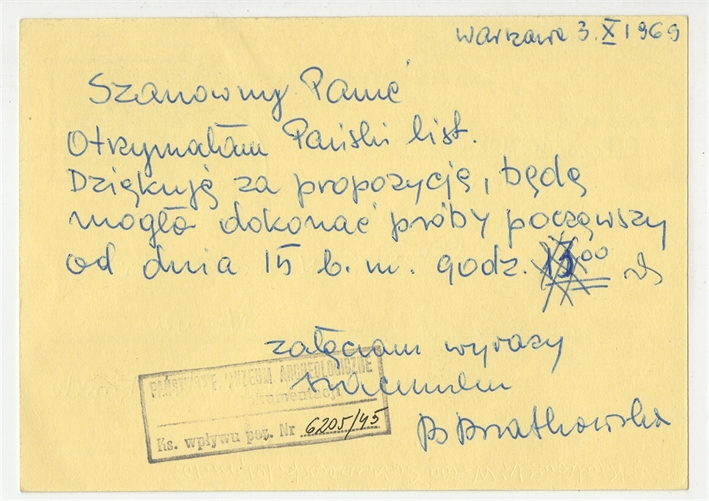 Warszawa 3.X 1969
Szanowny Panie
Otrzymałam Pański list.
Dziękuję za propozycję, będę
mogła dokonać próby począwszy
od dnia 15 b.m. godz. 13⁰⁰
załączam wyrazy
szacunku
B Bratkowska
PAŃSTWOWE MUZEUM ARCHEOLOGICZNE
Dokumentacji
Ks. wpływu poz. Nr 6205/45